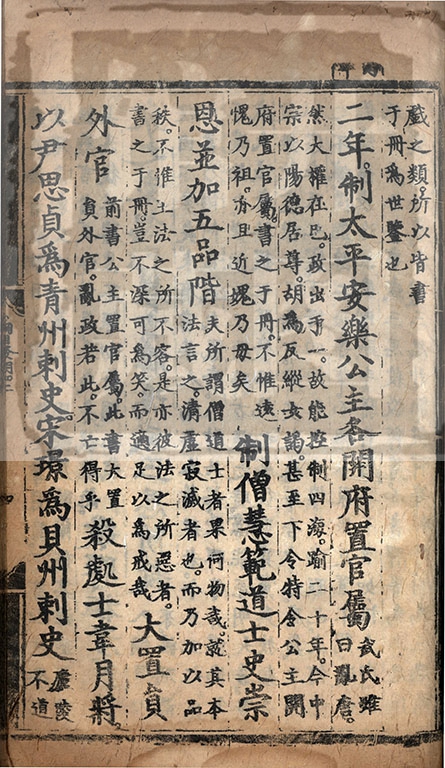 戲之類。所以皆書
于冊爲世鑒也
二年。制太平安樂公主各開府置官屬
武氏雖
曰亂唐。
然大權在巳。政出于一。故能控制四海。踰二十年。今中
宗以陽德居尊。胡爲反縱女謁。甚至下令特令公主開
府置官屬。書之于冊。不惟遠
愧乃祖。亦且近愧乃母矣
制僧慧範道士史崇
恩並加五品階
夫所謂僧道士者果何物哉。就其本
法言之。清虛寂滅者也。而乃加以品
秩。不惟王法之所不容。是亦彼法之所惡者。
書之于冊。豈不深可爲笑。而適足以爲戒哉
大置員
外官
前書公主置官屬。此書大置
員外官。亂政若此。不亡得乎
殺處士韋月將
以尹思貞爲青州刺史。宋璟爲貝州刺史
廬陵
不道